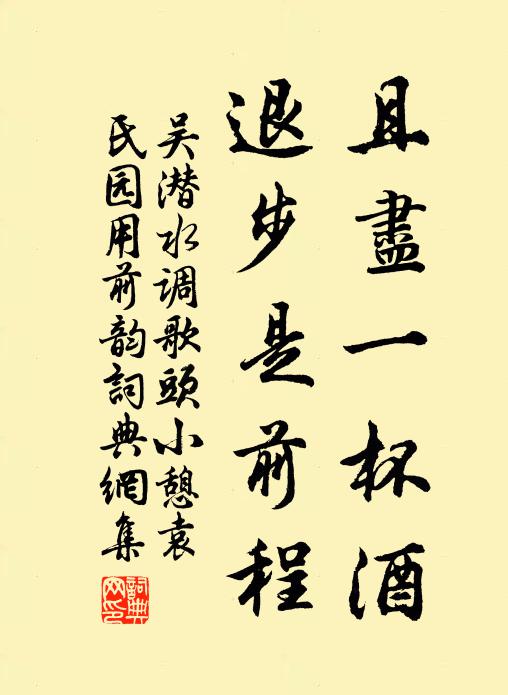 且盡一杯酒
退步是前程
吴潜水调歌頭小憩袁
氏园用前韵詞典網集
詞典网印